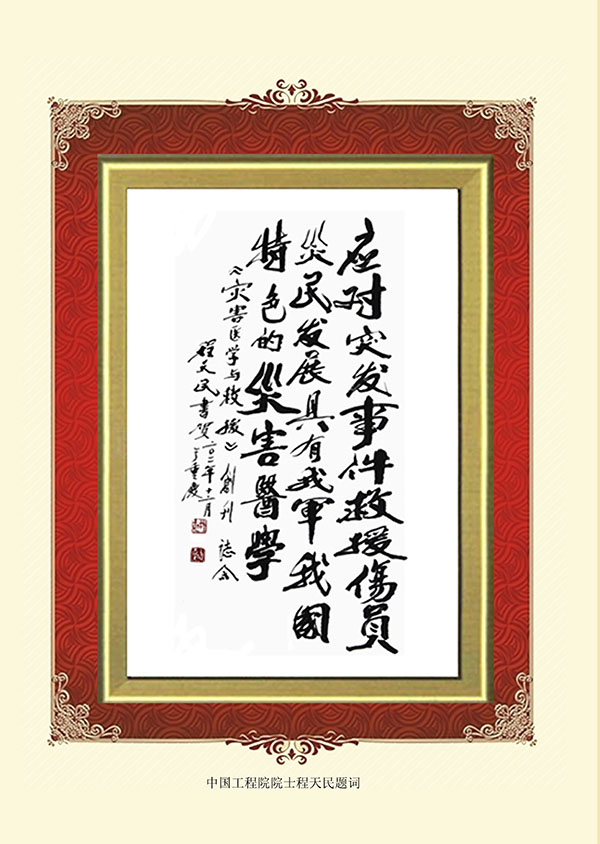 应对突发事件救援傷員
災民发展具有我軍我國
特色的災害醫學
《灾害医学与救援》創刊誌念
程天民書贺二〇一二年十一月
于重慶
中国工程院院士程天民题词